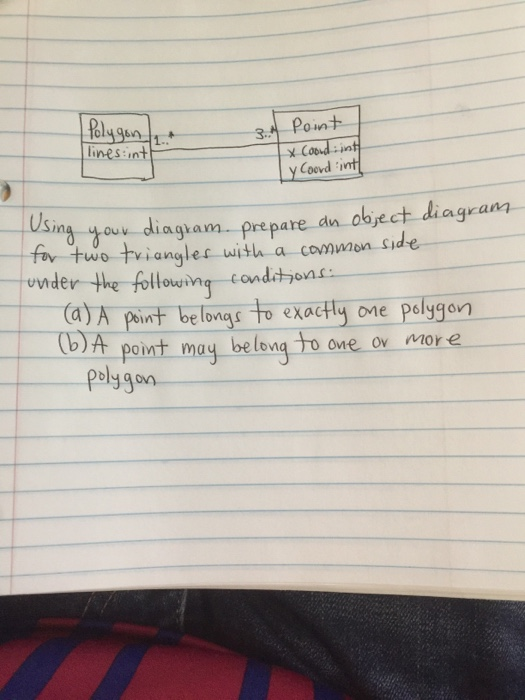 Polygon 1..* 3..* Point
lines:int x Coord:int
y Coord:int
Using your diagram. prepare an object diagram
for two triangles with a common side
under the following conditions:
(a) A point belongs to exactly one polygon
(b) A point may belong to one or more
polygon